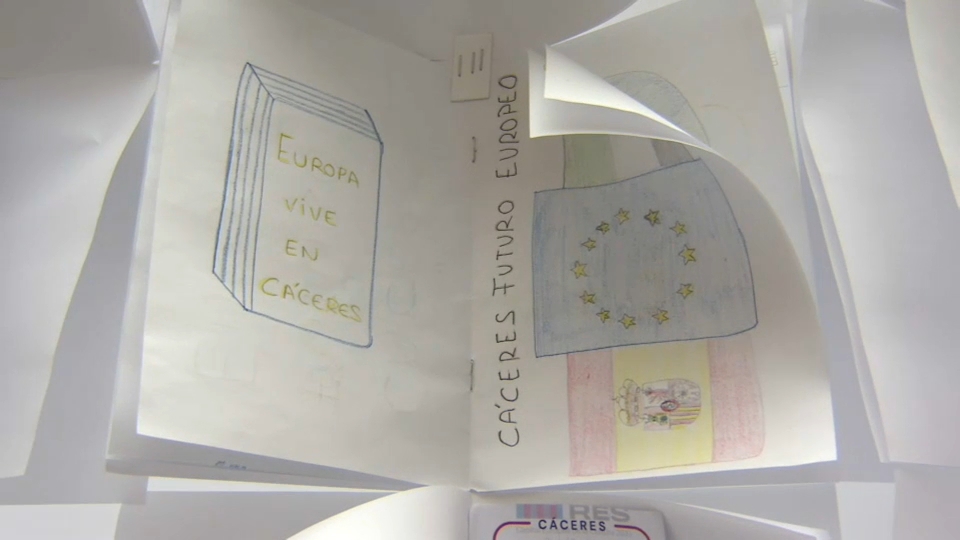 EUROPA
VIVE
EN
CÁCERES
CÁCERES FUTURO EUROPEO
RES
CÁCERES